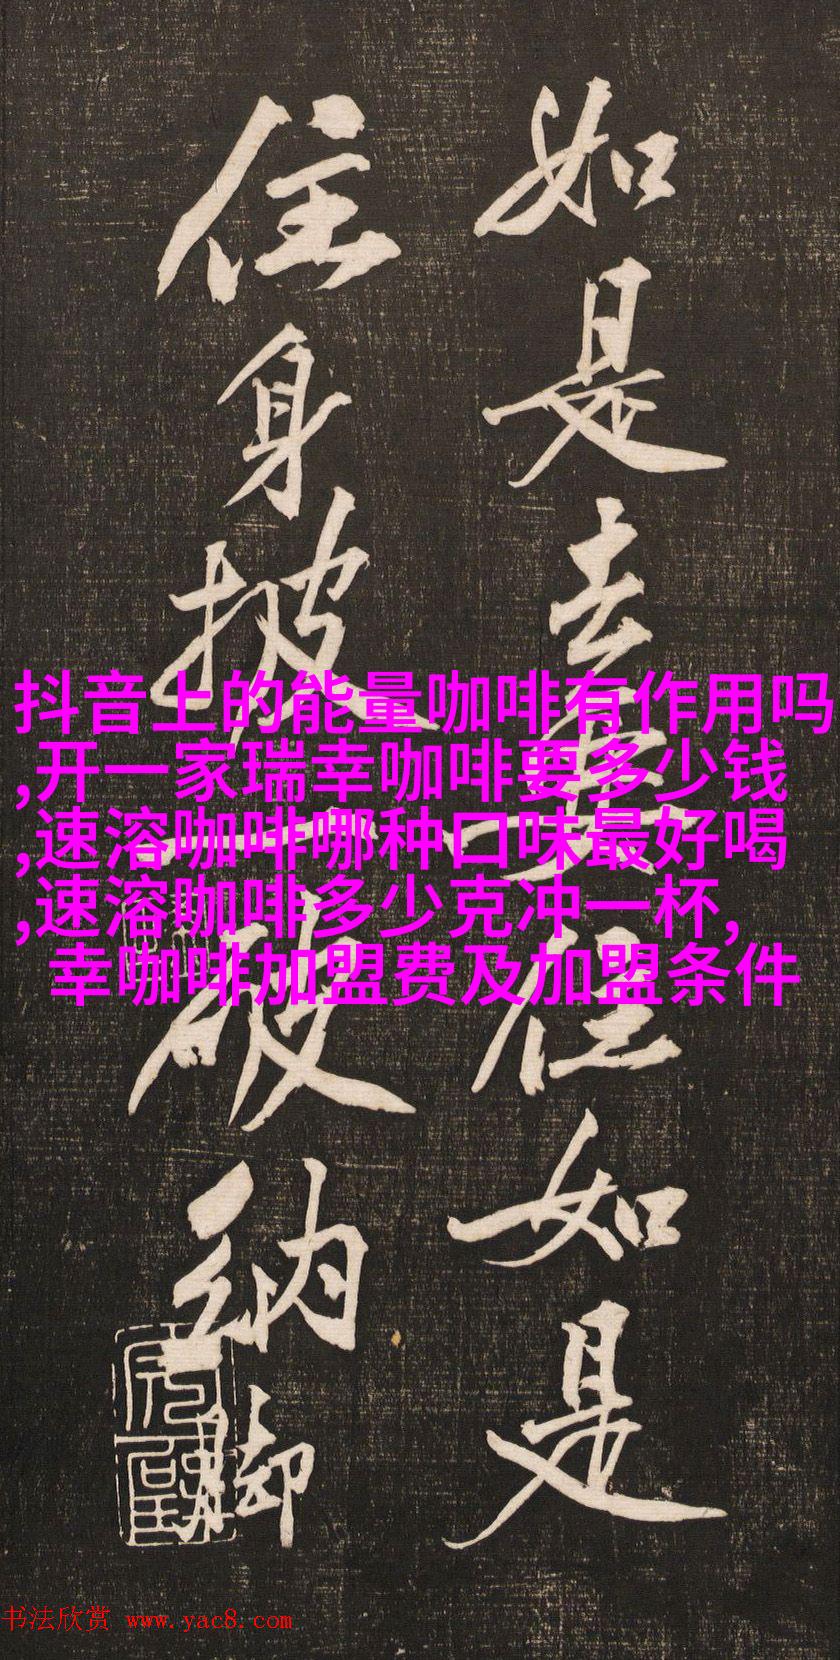 如是去住如是
住身披一破纳脚
抖音上的能量咖啡有作用吗
,开一家瑞幸咖啡要多少钱
,速溶咖啡哪种口味最好喝
,速溶咖啡多少克冲一杯,
幸咖啡加盟费及加盟条件
书法欣赏 www.yac8.com